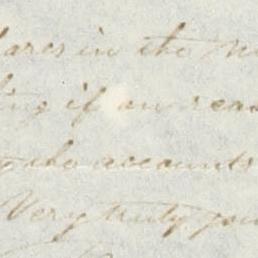 lares in the
ing if an reas
the accounts
Very truly you